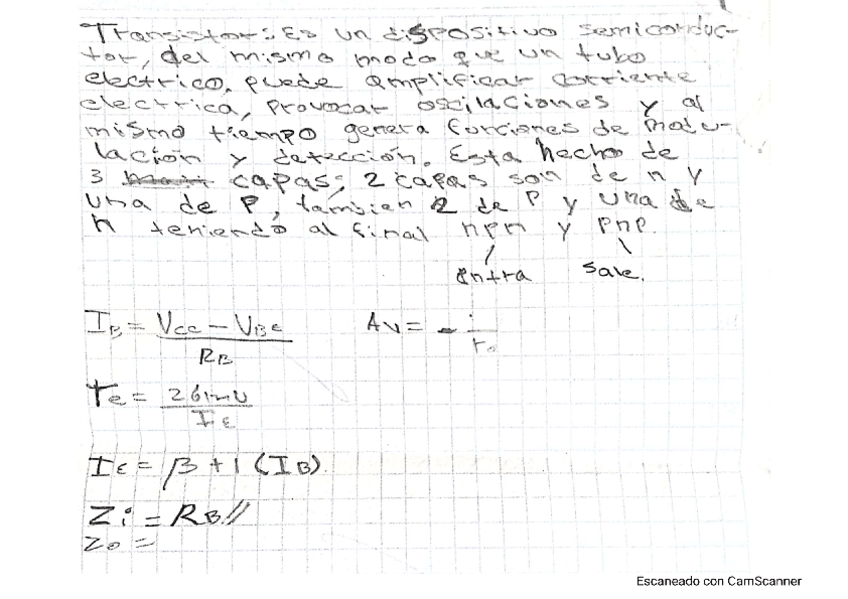 Transistor: Es un dispositivo semiconduc-
tor, del mismo modo que un tubo
electrico, puede amplificar corriente
electrica, provocar oscilaciones y al
mismo tiempo genera funciones de modu-
lación y detección. Esta hecho de
3 capas; 2 capas son de n y
una de P, tambien 2 de P y una de
n teniendo al final npn y pnp.
entra sale.
IB = Vcc - VBE / RB
Av = - / ro
re = 26mV / IE
IE = β + 1 (IB)
Zi = RB//
Zo =
Escaneado con CamScanner